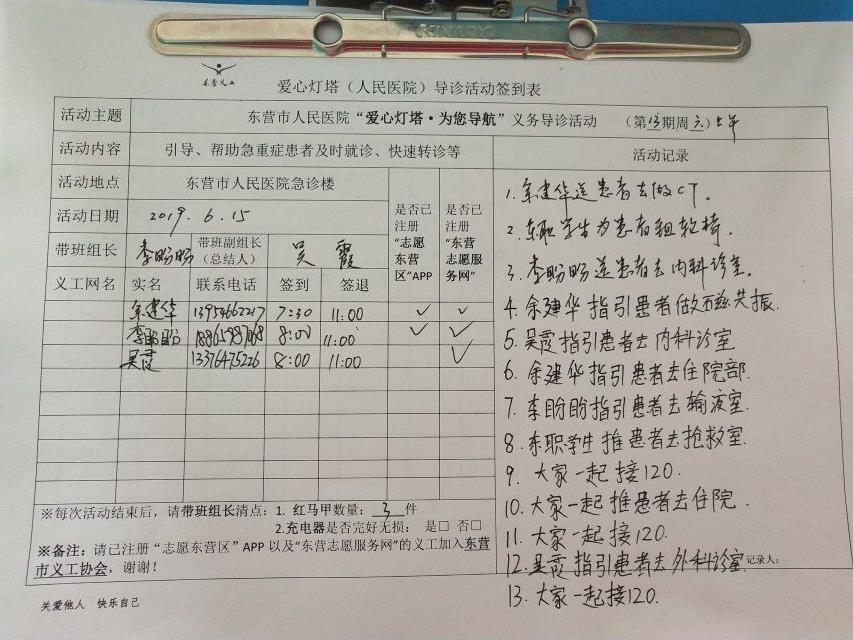 东营义工
爱心灯塔（人民医院）导诊活动签到表
活动主题 东营市人民医院“爱心灯塔·为您导航”义务导诊活动 （第13期周六）上午
活动内容 引导、帮助急重症患者及时就诊、快速转诊等 活动记录
活动地点 东营市人民医院急诊楼
活动日期 2019.6.15
是否已注册“志愿东营区”APP
是否已注册“东营志愿服务网”
带班组长 李盼盼 带班副组长（总结人） 吴霞
义工网名 实名 联系电话 签到 签退
余建华 13954662217 7:30 11:00 ✓ ✓
李盼盼 18865987068 8:00 11:00 ✓ ✓
吴霞 13376475226 8:00 11:00 ✓
1.余建华送患者去做CT.
2.东职学生为患者租轮椅.
3.李盼盼送患者去内科诊室.
4.余建华指引患者做磁共振.
5.吴霞指引患者去内科诊室
6.余建华指引患者去住院部.
7.李盼盼指引患者去输液室.
8.东职学生推患者去抢救室.
9.大家一起接120.
10.大家一起推患者去住院.
11.大家一起接120.
12.吴霞指引患者去外科诊室. 记录人：
13.大家一起接120.
※每次活动结束后，请带班组长清点：1. 红马甲数量：3件
2.充电器是否完好无损： 是□ 否□
※备注：请已注册“志愿东营区”APP 以及“东营志愿服务网”的义工加入东营
市义工协会，谢谢！
关爱他人 快乐自己